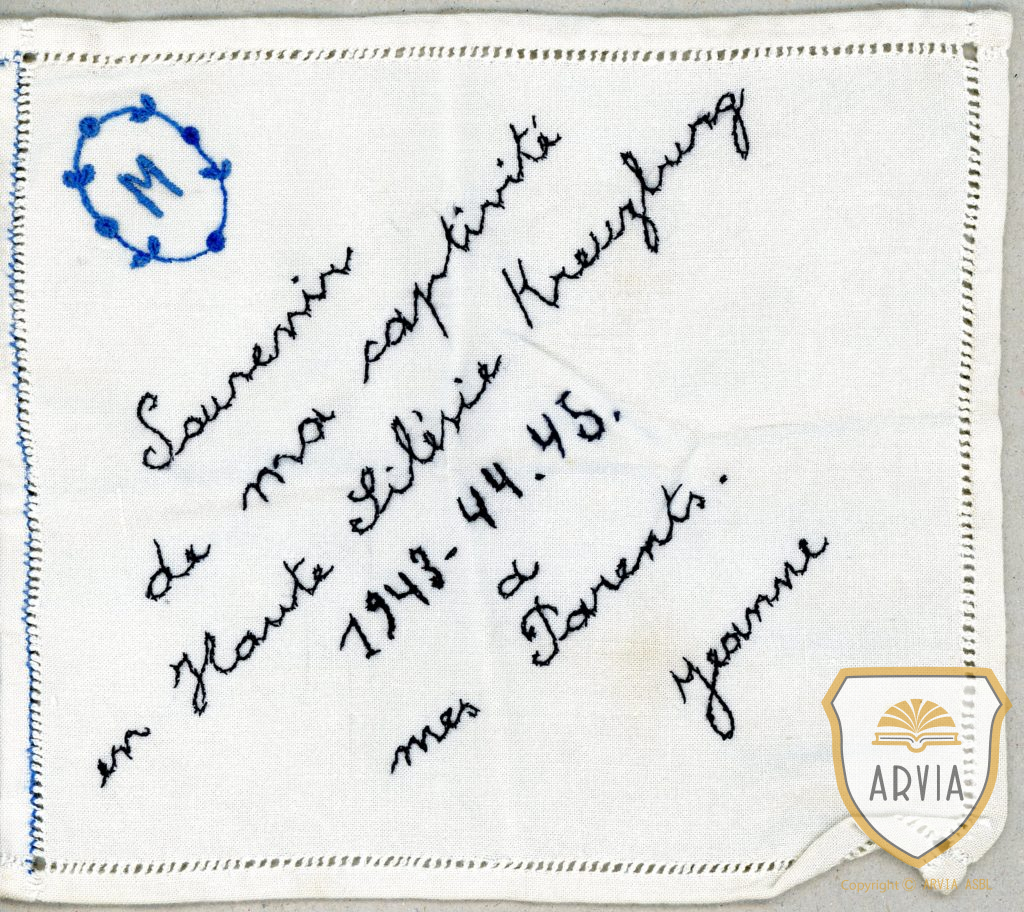 M
Souvenir
de ma captivité
en Haute Silésie Kreuzburg
1943. 44. 45.
mes Parents.
à
Jeanne
ARVIA
Copyright © ARVIA ASBL